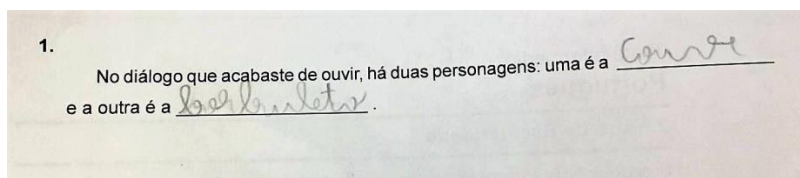 1.
No diálogo que acabaste de ouvir, há duas personagens: uma é a Couve
e a outra é a borboleta.